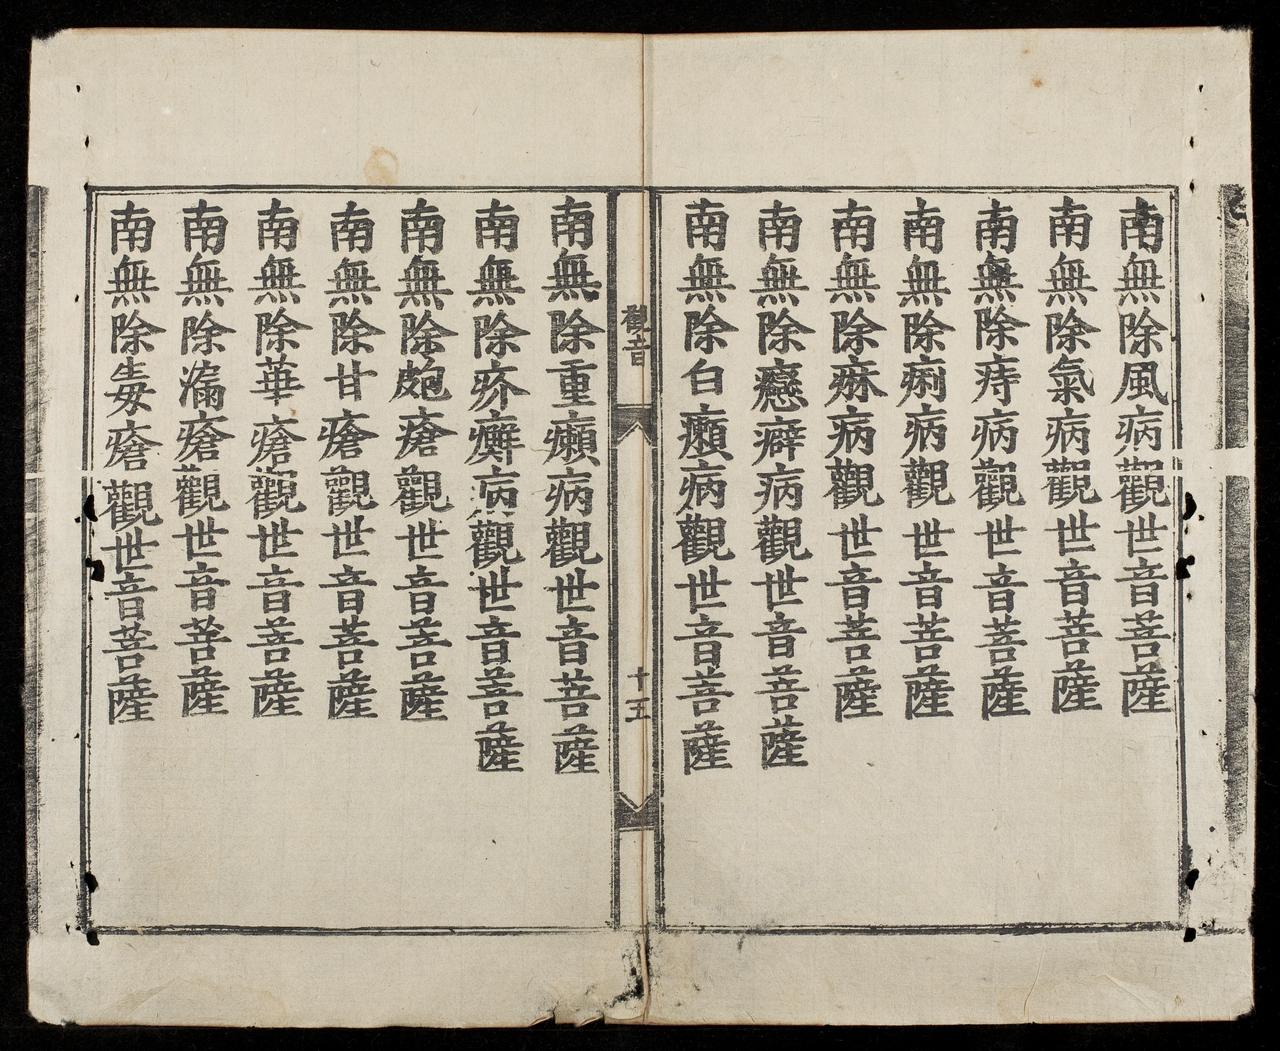 南無除風病觀世音菩薩
南無除氣病觀世音菩薩
南無除痔病觀世音菩薩
南無除痢病觀世音菩薩
南無除痳病觀世音菩薩
南無除癋癖病觀世音菩薩
南無除白癩病觀世音菩薩
觀音
十五
南無除重癩病觀世音菩薩
南無除疥癬病觀世音菩薩
南無除皰瘡觀世音菩薩
南無除甘瘡觀世音菩薩
南無除華瘡觀世音菩薩
南無除漏瘡觀世音菩薩
南無除毒瘡觀世音菩薩